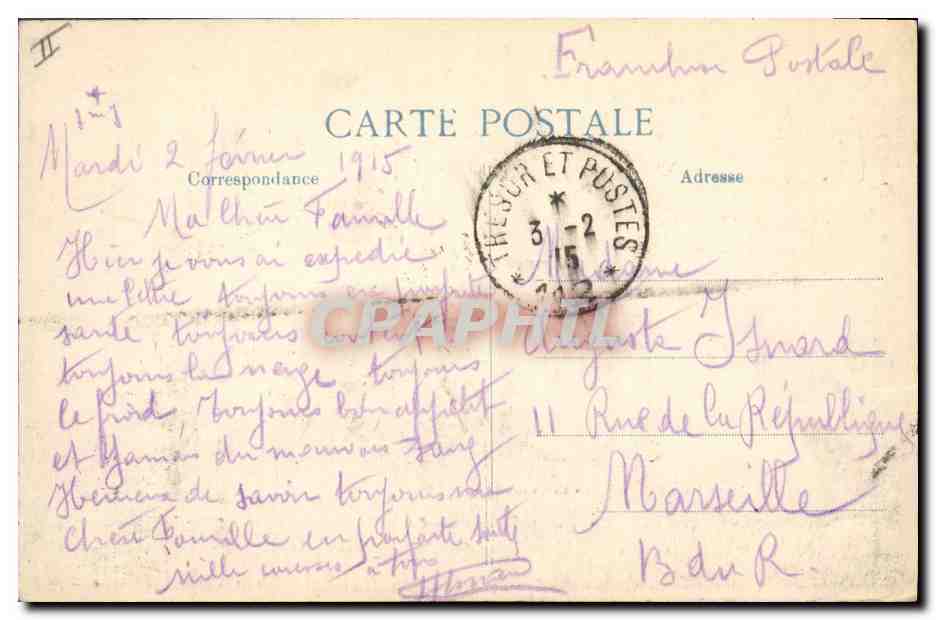 II
Franchise Postale
CARTE POSTALE
Mardi 2 février 1915
Correspondance
Adresse
TRESOR ET POSTES
3 - 2
15
Ma Chère Famille
Hier je vous ai expédié
une lettre toujours en parfaite
santé toujours
toujours la neige toujours
le froid toujours bon appétit
et jamais du mauvais sang
Heureux de savoir toujours ma
Chère Famille en parfaite santé
mille caresses à tous
Madame
Auguste Isnard
11 Rue de la République
Marseille
B du R.
CPAPHIL